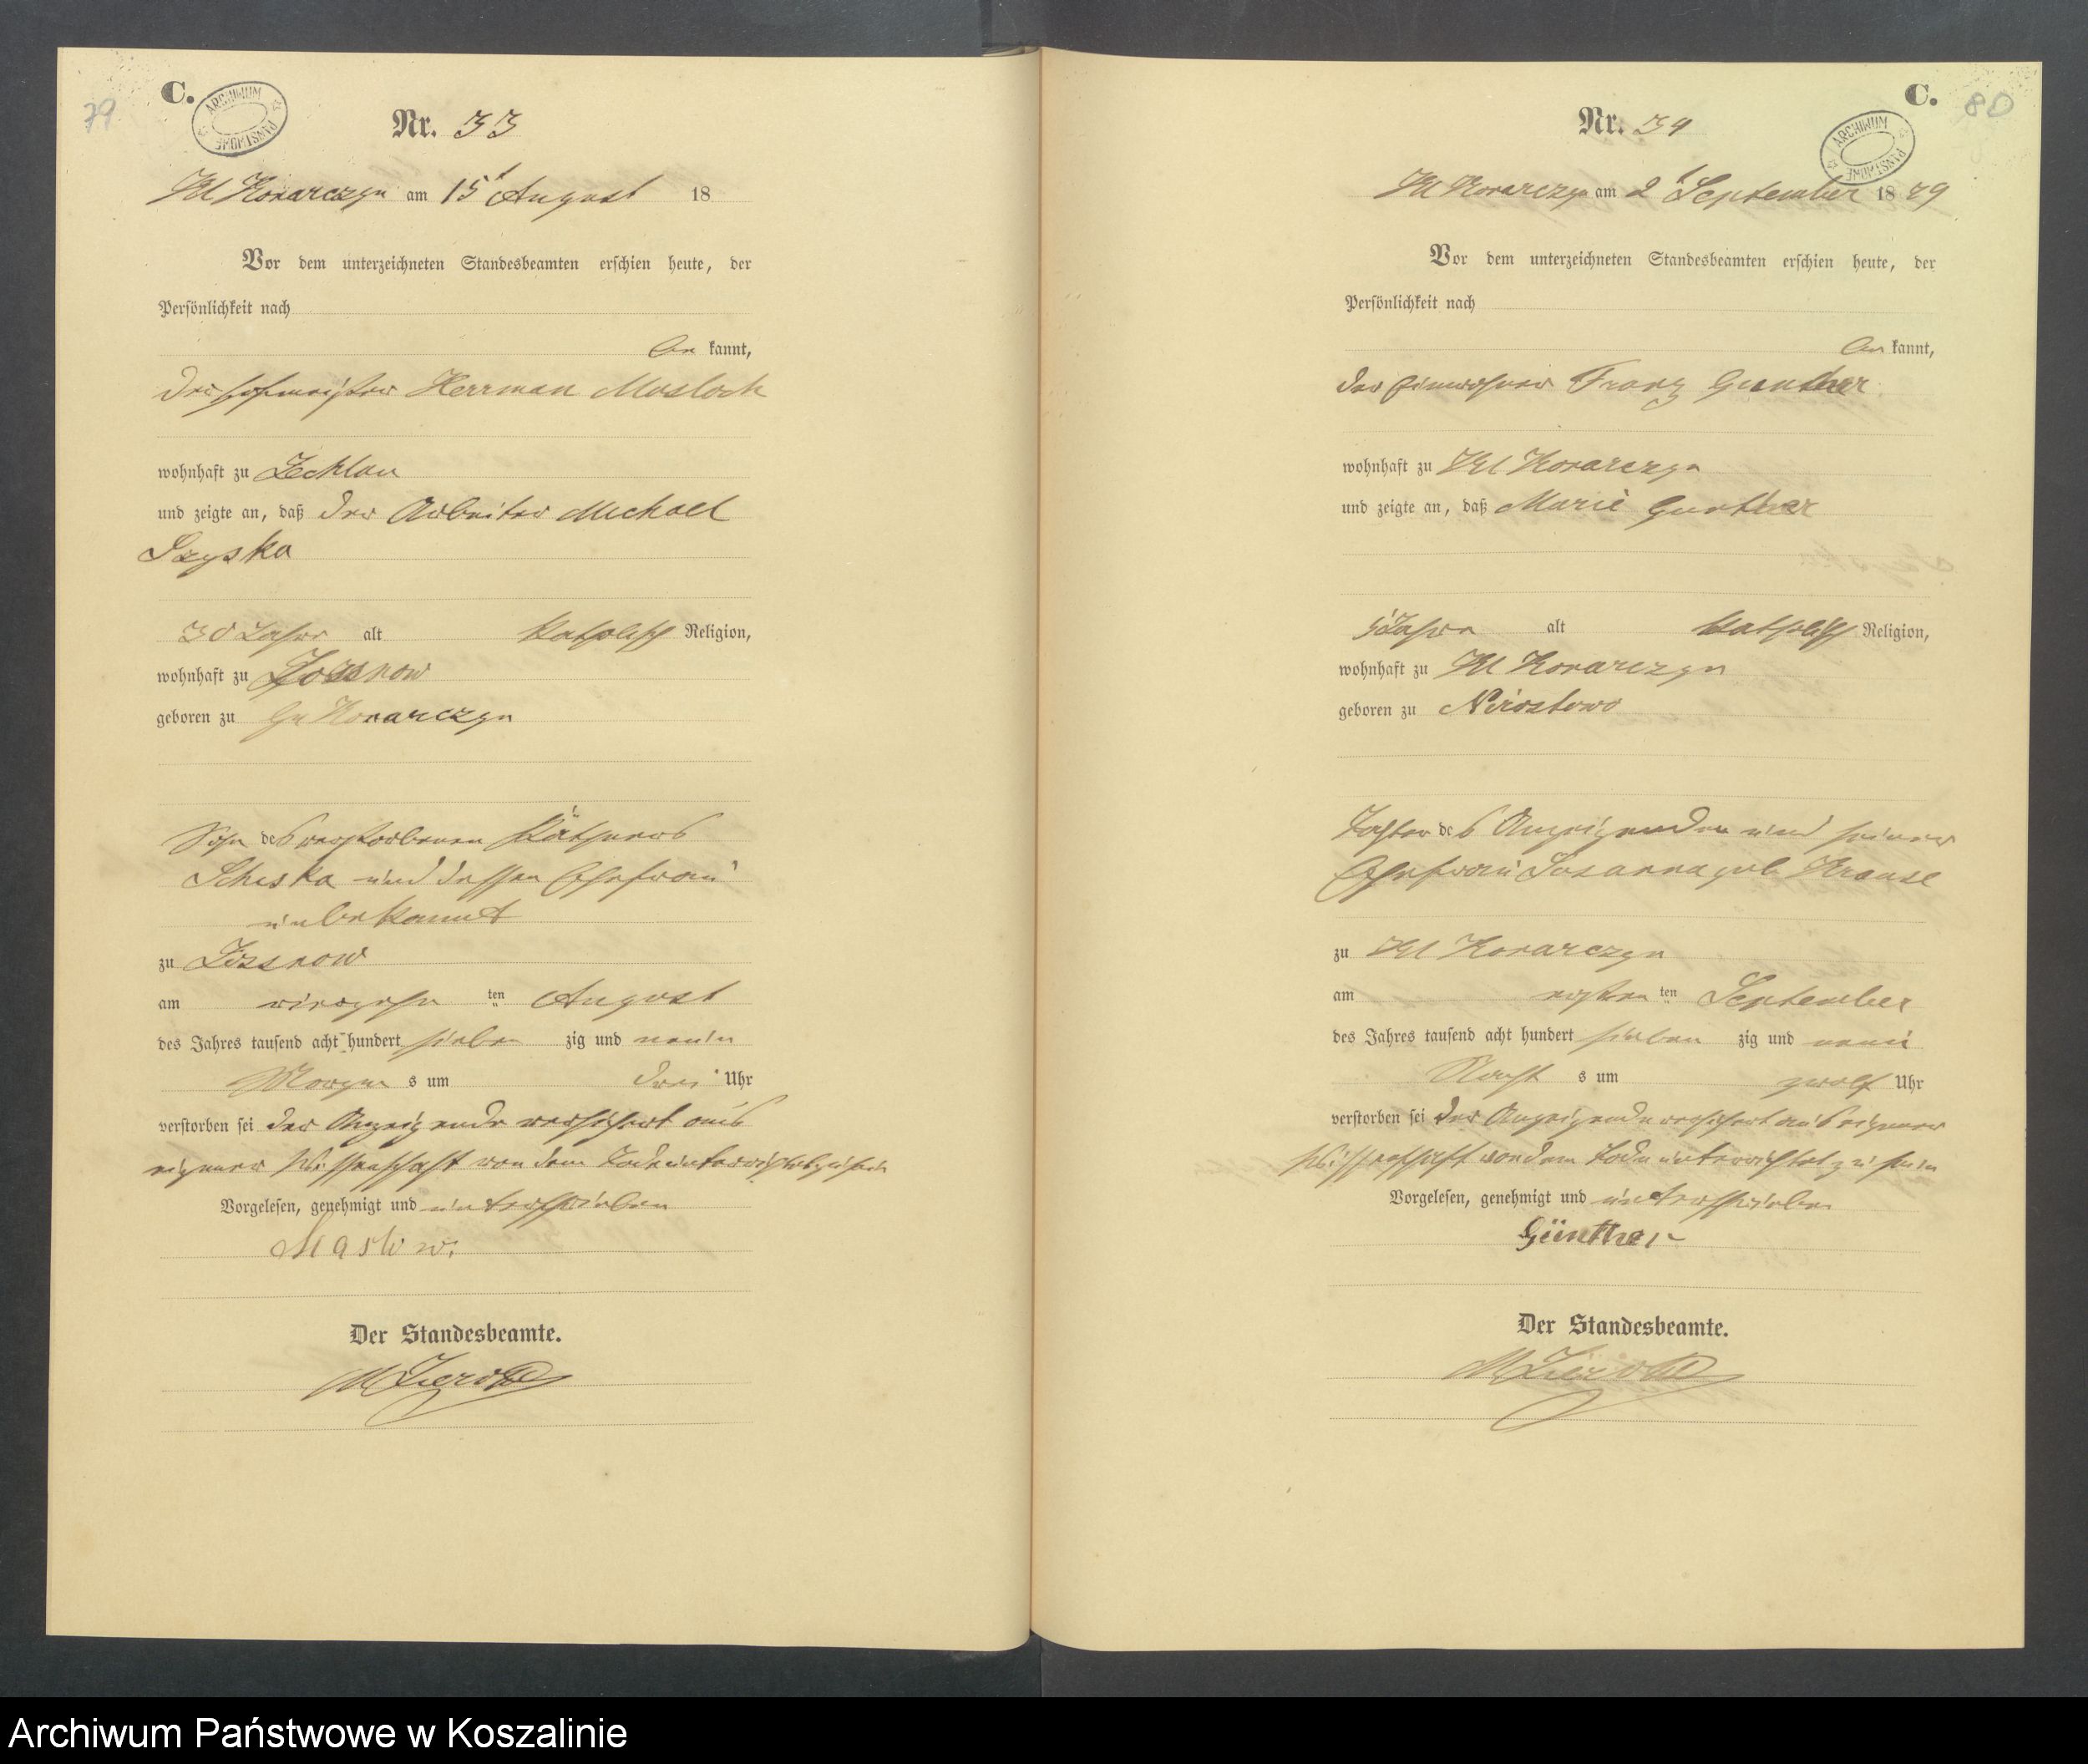 79
C.
ARCHIWUM PAŃSTWOWE
Nr. 33
Kl Konarczyn am 15t August 18
Vor dem unterzeichneten Standesbeamten erschien heute, der
Persönlichkeit nach
be kannt,
der Hofmeister Herrman Masloch
wohnhaft zu Zechlau
und zeigte an, daß der Arbeiter Michael
Szyska
30 Jahre alt katholisch Religion,
wohnhaft zu
geboren zu Gr Konarczyn
Sohn des verstorbenen Käthners
Scheska und dessen Ehefrau
unbekannt
zu
am vierzehn ten August
des Jahres tausend acht hundert sieben zig und neun
Morgen s um drei Uhr
verstorben sei der Anzeigende versichert aus
eigener Wissenschaft von dem Tode unterrichtet zu sein
Vorgelesen, genehmigt und unterschrieben
Der Standesbeamte.
80
C.
ARCHIWUM PAŃSTWOWE
Nr. 34
Kl Konarczyn am 2t September 1879
Vor dem unterzeichneten Standesbeamten erschien heute, der
Persönlichkeit nach
be kannt,
der Einwohner Franz Gunther
wohnhaft zu Kl Konarczyn
und zeigte an, daß Marie Gunther
Jahre alt katholisch Religion,
wohnhaft zu Kl Konarczyn
geboren zu
Tochter des Anzeigenden und seiner
Ehefrau Susanna geb Krause
zu Kl Konarczyn
am ersten ten September
des Jahres tausend acht hundert sieben zig und neun
Nacht s um zwolf Uhr
verstorben sei der Anzeigende versichert aus eigener
Wissenschaft von dem Tode unterrichtet zu sein
Vorgelesen, genehmigt und unterschrieben
Günther
Der Standesbeamte.
Archiwum Państwowe w Koszalinie